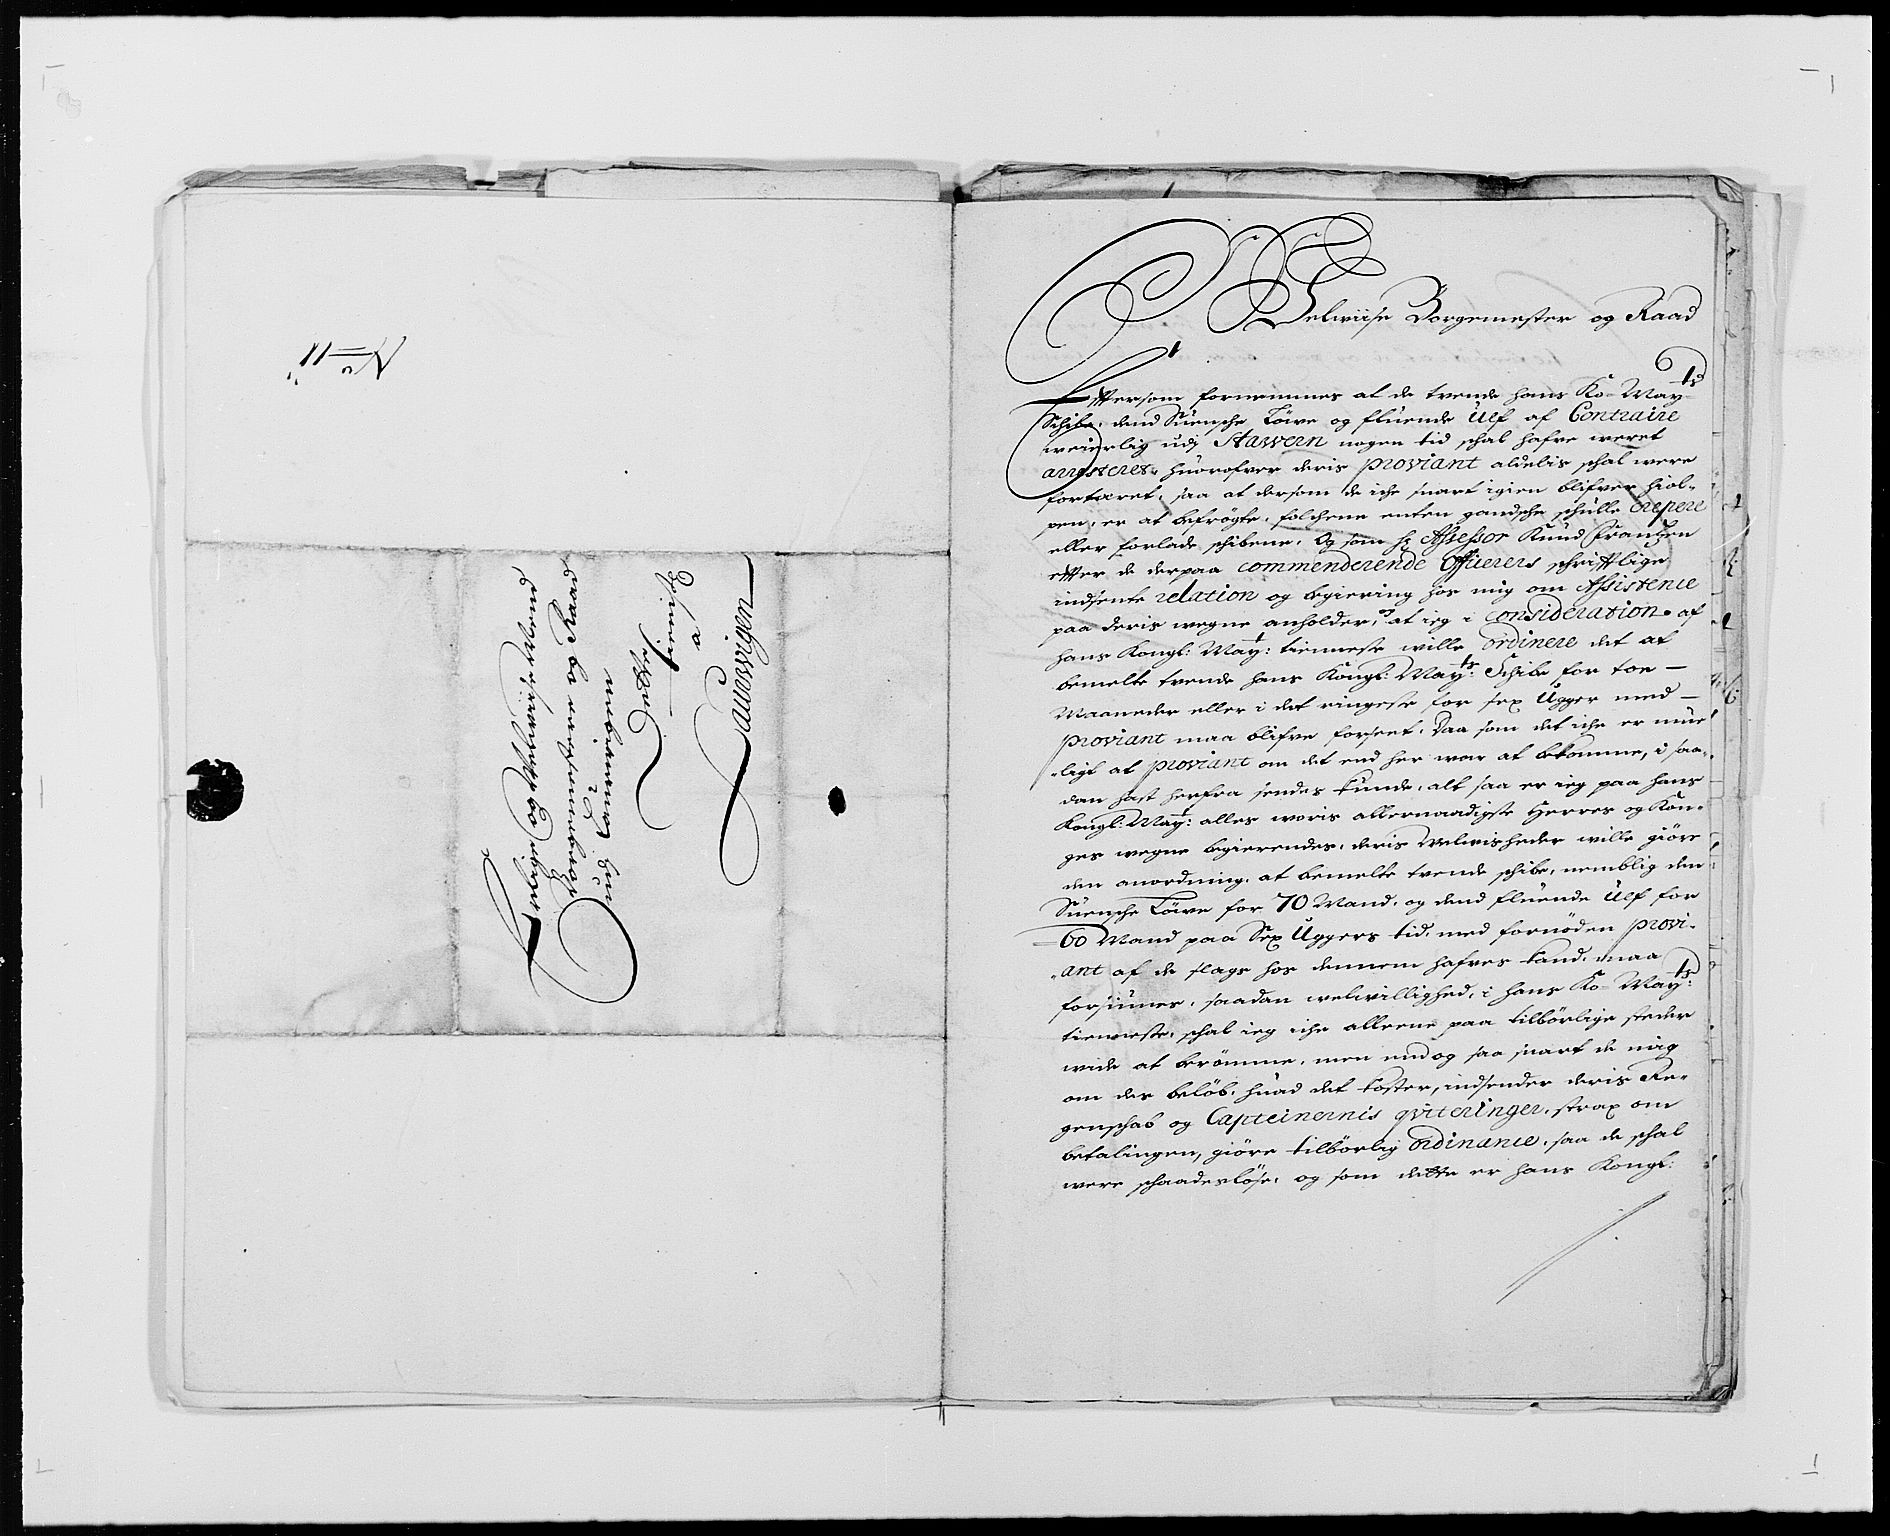 No 11.
Erlige og Welwiise Mend
Borgemestere og Raad
udj Laurwigen
Dette
tienstl:
a
Lauerwigen
Welwiise Borgemester og Raad
Eftersom fornemmes at de tvende hans Ko: Mayts
Schibe, dend Suensche Löwe og fluende Ulf af Contraire
weierlig udj Stawern nogen tid schal hafve weret
arresteret, huorofver deris proviant aldelis schal were
fortæret, saa at dersom de iche snart igien blifver hiol-
pen, er at befrögte, folchene enten gandsche schulle crepere
eller forlade schibene, Og som hr Assessor Knud Frantzen
efter de derpaa commenderende Officerers schrifftlige
indsente relation og begiering hos mig om Assistence
paa deris wegne anholder, at ieg i consideration af
hans Kongl: Mayts: tienneste wille ordinere det at
bemelte tvende hans Kongl: Mayts: Schibe for toe
Maaneder eller i det ringeste for sex Ugger med
proviant maa blifve forseet. Daa som det iche er mue-
ligt at proviant om det end her war at bekomme, i saa-
dan hast herfra sendes kunde, alt saa er ieg paa hans
Kongl: Mayts: alles woris allernaadigste Herres og Kon-
ges wegne begierendes, deris Welwisheder wille giöre
den anordning, at bemelte tvende schibe, nemblig den
Suensche Löwe for 70 Mand, og dend fluende Ulf for
60 Mand paa Sex Uggers tid, med fornöden provi-
ant af de slags hos dennem hafves kand, maa
forsiunes, saadan welwillighed, i hans Ko: Mayts:
tienneste, schal ieg iche alleene paa tilbörlige steder
wide at berömme, men end og saa snart de mig
om des belöb, huad det koster, indsender deris Re-
genschab og Capteinernis qviteringer, strax om
betalingen, giöre tilbörlig ordinance, saa de schal
were schaadesløse, og som dette er hans Kongl: